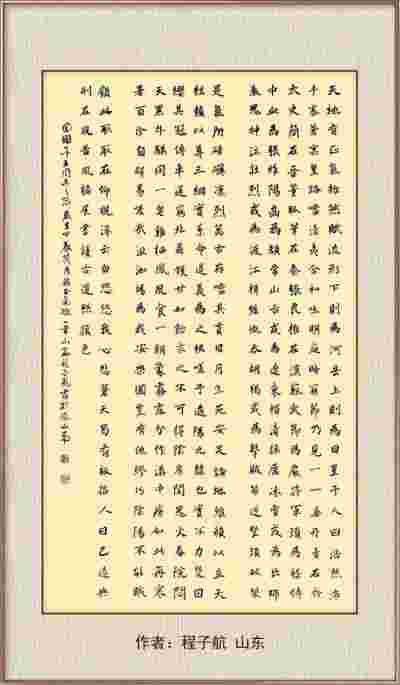 天地有正氣雜然賦流形下則為河岳上則為日星于人曰浩然沛
乎塞蒼冥皇路當清夷含和吐明庭時窮節乃見一一垂丹青在齊
太史簡在晉董狐筆在秦張良椎在漢蘇武節為嚴將軍頭為嵇侍
中血為張睢陽齒為顏常山舌或為遼東帽清操厲冰雪或為出師
表鬼神泣壯烈或為渡江楫慷慨吞胡羯或為擊賊笏逆豎頭破裂
是氣所磅礴凜烈萬古存當其貫日月生死安足論地維賴以立天
柱賴以尊三綱實系命道義為之根嗟予遘陽九隸也實不力楚囚
纓其冠傳車送窮北鼎鑊甘如飴求之不可得陰房闃鬼火春院閟
天黑牛驥同一皂雞棲鳳凰食一朝蒙霧露分作溝中瘠如此再寒
暑百沴自辟易哀哉沮洳場為我安樂國豈有他繆巧陰陽不能賊
顧此耿耿在仰視浮雲白悠悠我心悲蒼天曷有極哲人日已遠典
刑在夙昔風檐展書讀古道照顏色
作者：程子航 山东